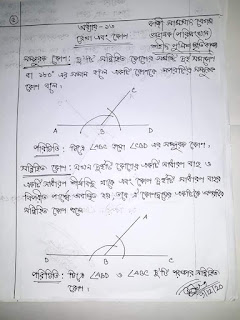 অধ্যায় - ১৩
রেখা এবং কোণ
সম্পূরক কোণ : দুইটি সন্নিহিত কোণের সমষ্টি দুই সমকোণ
বা ১৮০° এর সমান হলে একটি কোণকে অপরটির সম্পূরক
কোণ বলে।
C
A B D
পরিচিতি : চিত্রে ∠ABC হলো ∠CBD এর সম্পূরক কোণ।
সন্নিহিত কোণ : যখন দুইটি কোণের একটি সাধারণ বাহু ও
একটি সাধারণ শীর্ষবিন্দু থাকে এবং কোণ দুইটি সাধারণ বাহুর
বিপরীত পাশে অবস্থিত হয়, তবে ঐ কোণদ্বয়ের একটিকে অপরটির
সন্নিহিত কোণ বলে।
C
D B A
পরিচিতি : চিত্রে ∠ABD ও ∠ABC দুইটি পরস্পর সন্নিহিত
কোণ।